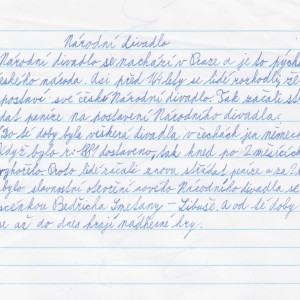 Národní divadlo
Národní divadlo se nachází v Praze a je to pýcha
českého národa. Asi před 141 lety se lidé rozhodly že
postaví své české Národní divadlo. Tak začali st
dat peníze na postavení Národního divadla.
Do té doby byla veškerá divadla v čechách jen německ
Když bylo r. 1881 dostaveno, tak hned po 2 měsících
vyhořelo. Proto lidé začali znovu střádat peníze a za 2
bylo slavnostní otevření nového Národního divadla se
scénkou Bedřicha Smetany - Libuše. A od té doby
se až do dnes hrají nádherné hry.